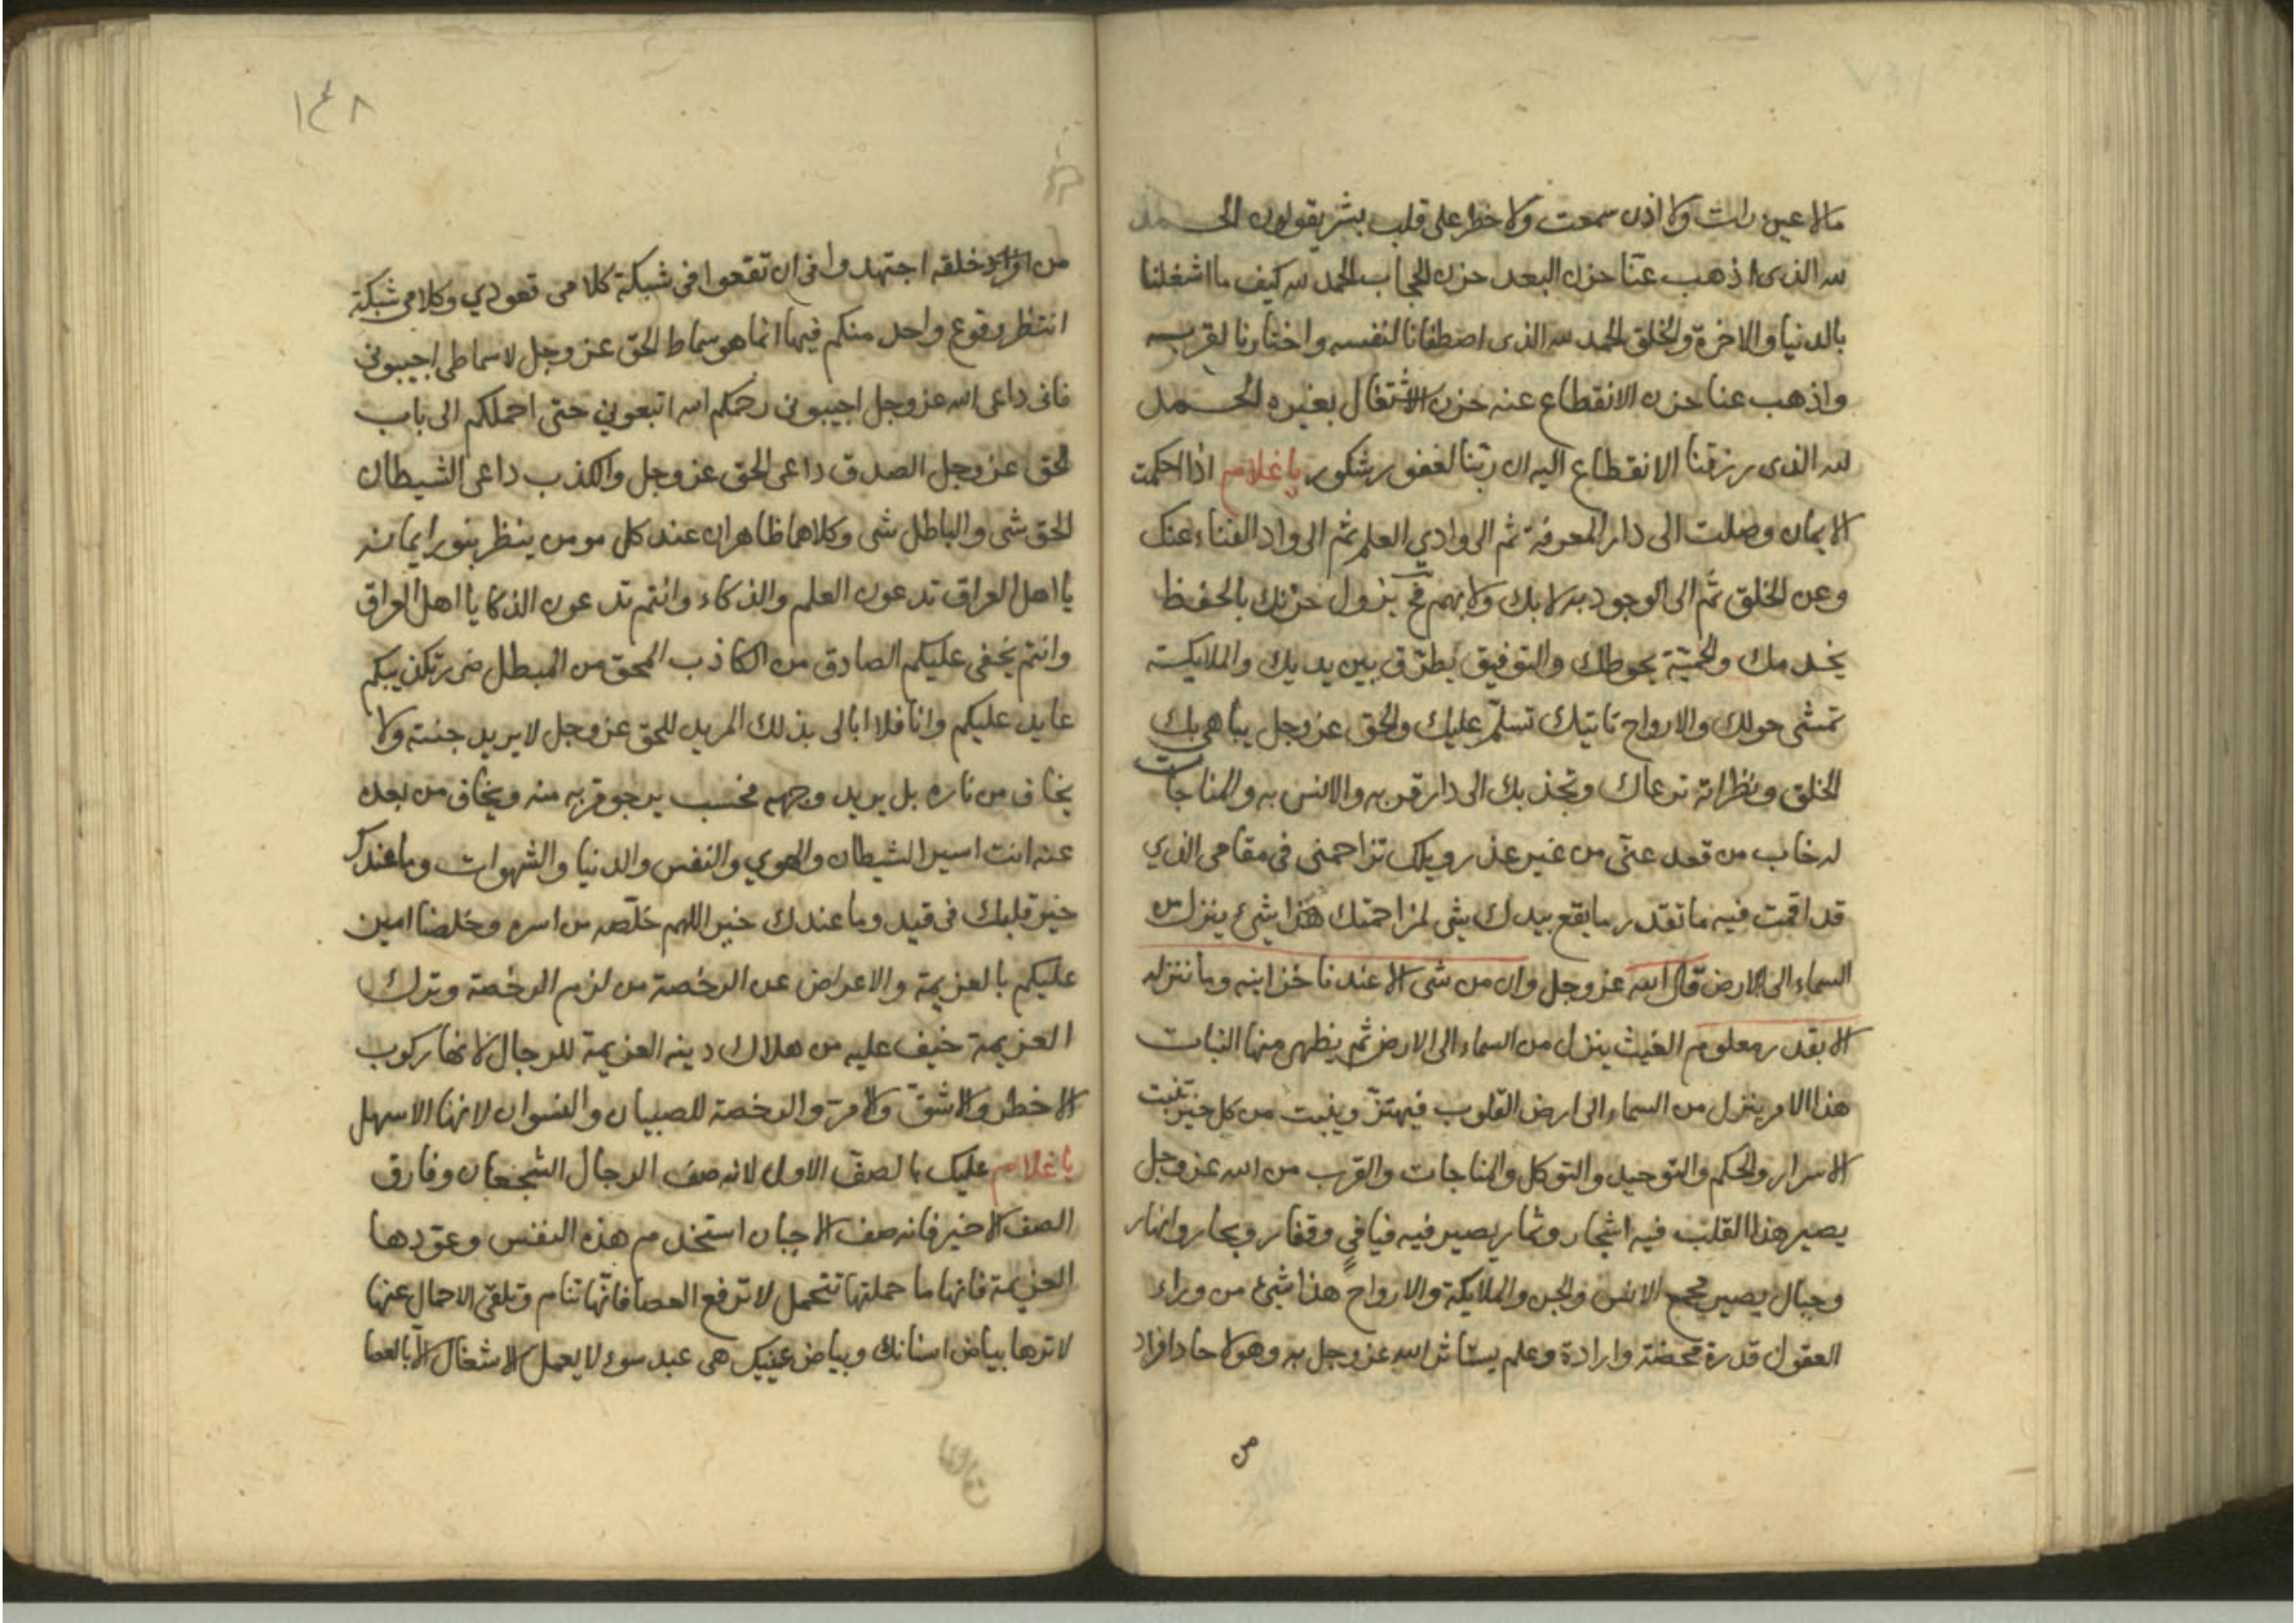 ما لا عين رات ولا اذن سمعت ولا خطر على قلب بشر يقولون الحمد
لله الذى اذهب عنّا حزن البعد حزن الحجاب الحمد لله كيف ما اشغلنا
بالدنيا والاخرة والخلق الحمد لله الذى اصطفانا لنفسه واختارنا لقربه
واذهب عنا حزن الانقطاع عنه حزن الاشتغال بغيره الحمد
لله الذى رزقنا الانقطاع اليه ان ربّنا لغفور شكور يا غلام اذا احكمت
الايمان وصلت الى دار المعرفة ثم الى وادي العلم ثم الى واد الفناء عنك
وعن الخلق ثم الى الوجود به لا بك ولا بهم فح يزول حزنك بالحفظ
يخدمك والحميّة يحوطك والتوفيق يطرّق بين يديك والملايكة
تمشى حولك والارواح تاتيك تسلّم عليك والحق عز وجل يباهى بك
الخلق ونظراته ترعاك وتجذبك الى دار قربه والانس به والمناجات
له خاب من قعد عنّى من غير عذر ويلك تزاحمنى فى مقامى الذي
قد اقمت فيه ما تقدر ما يقع بيدك شى لمزاحمتك هذا شىء ينزل من
السماء الى الارض قال الله عز وجل وان من شى الا عندنا خزاينه وما ننزله
الا بقدر معلوم الغيث ينزل من السماء الى الارض ثم يظهر منها النبات
هذا الامر ينزل من السماء الى ارض القلوب فيهتزّ وينبت من كل خير تنبت
الاسرار والحكم والتوحيد والتوكل والمناجات والقرب من الله عز وجل
يصير هذا القلب فيه اشجار وثمار يصير فيه فيافي وقفار وبحار وانهار
وجبال يصير مجمع الانس والجن والملايكة والارواح هذا شىء من وراء
العقول قدرة محضة وارادة وعلم يستاثر الله عز وجل به وهو لاحاد افراد
من
١٤٨
من افراد خلقه اجتهدوا فى ان تقعوا فى شبكة كلامى قعودي وكلامى شبكة
انتظر وقوع واحد منكم فيها انما هو سماط الحق عز وجل لا سماطى اجيبونى
فانى داعى الله عز وجل اجيبونى رحمكم الله اتبعوني حتى احملكم الى باب
الحق عز وجل الصدق داعى الحق عز وجل والكذب داعى الشيطان
الحق شى والباطل شى وكلاهما ظاهران عند كل مومن ينظر بنور ايمانه
يا اهل العراق تدعون العلم والذكاء وانتم تدعون الذكا يا اهل العراق
وانتم يخفى عليكم الصادق من الكاذب المحق من المبطل ضرر تكذيبكم
عايد عليكم وانا فلا ابالى بذلك المريد للحق عز وجل لا يريد جنته ولا
يخاف من ناره بل يريد وجهه فحسب يرجو قربه منه ويخاف من بعده
عنه انت اسير الشيطان والهوي والنفس والدنيا والشهوات وما عندك
خير قلبك فى قيد وما عندك خير اللهم خلّصه من اسره وخلصنا امين
عليكم بالعزيمة والاعراض عن الرخصة من لزم الرخصة وترك
العزيمة خيف عليه من هلاك دينه العزيمة للرجال لانها ركوب
الاخطر والاشقّ والامرّ والرخصة للصبيان والنسوان لانها الاسهل
يا غلام عليك بالصفّ الاول لانه صف الرجال الشجعان وفارق
الصف الاخير فانه صف الاجبان استخدم هذه النفس وعوّدها
العزيمة فانها ما حملتها تتحمل لا ترفع العصا فانّها تنام وتلقى الاحمال عنها
لا ترها بياض اسنانك وبياض عينيك هى عبد سوء لا يعمل الاشغال الّا بالعصا